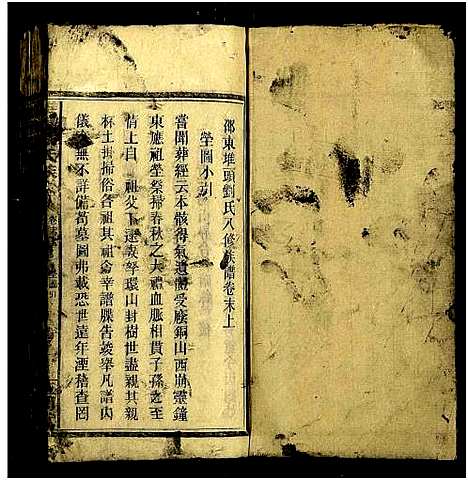 邵東堆頭劉氏八修族譜卷末上
塋圖小引
嘗聞葬經云本骸得氣遺體受廕銅山西崩靈鐘
東應祖塋祭掃春秋之大禮血脈相貫子孫之至
情上自 祖父下逮 環山封樹世盡親其親
杯土拜掃俗各祖其祖侖幸譜牒告竣舉凡譜內
儀 無不詳備苟墓圖弗載恐世遠年湮稽查罔